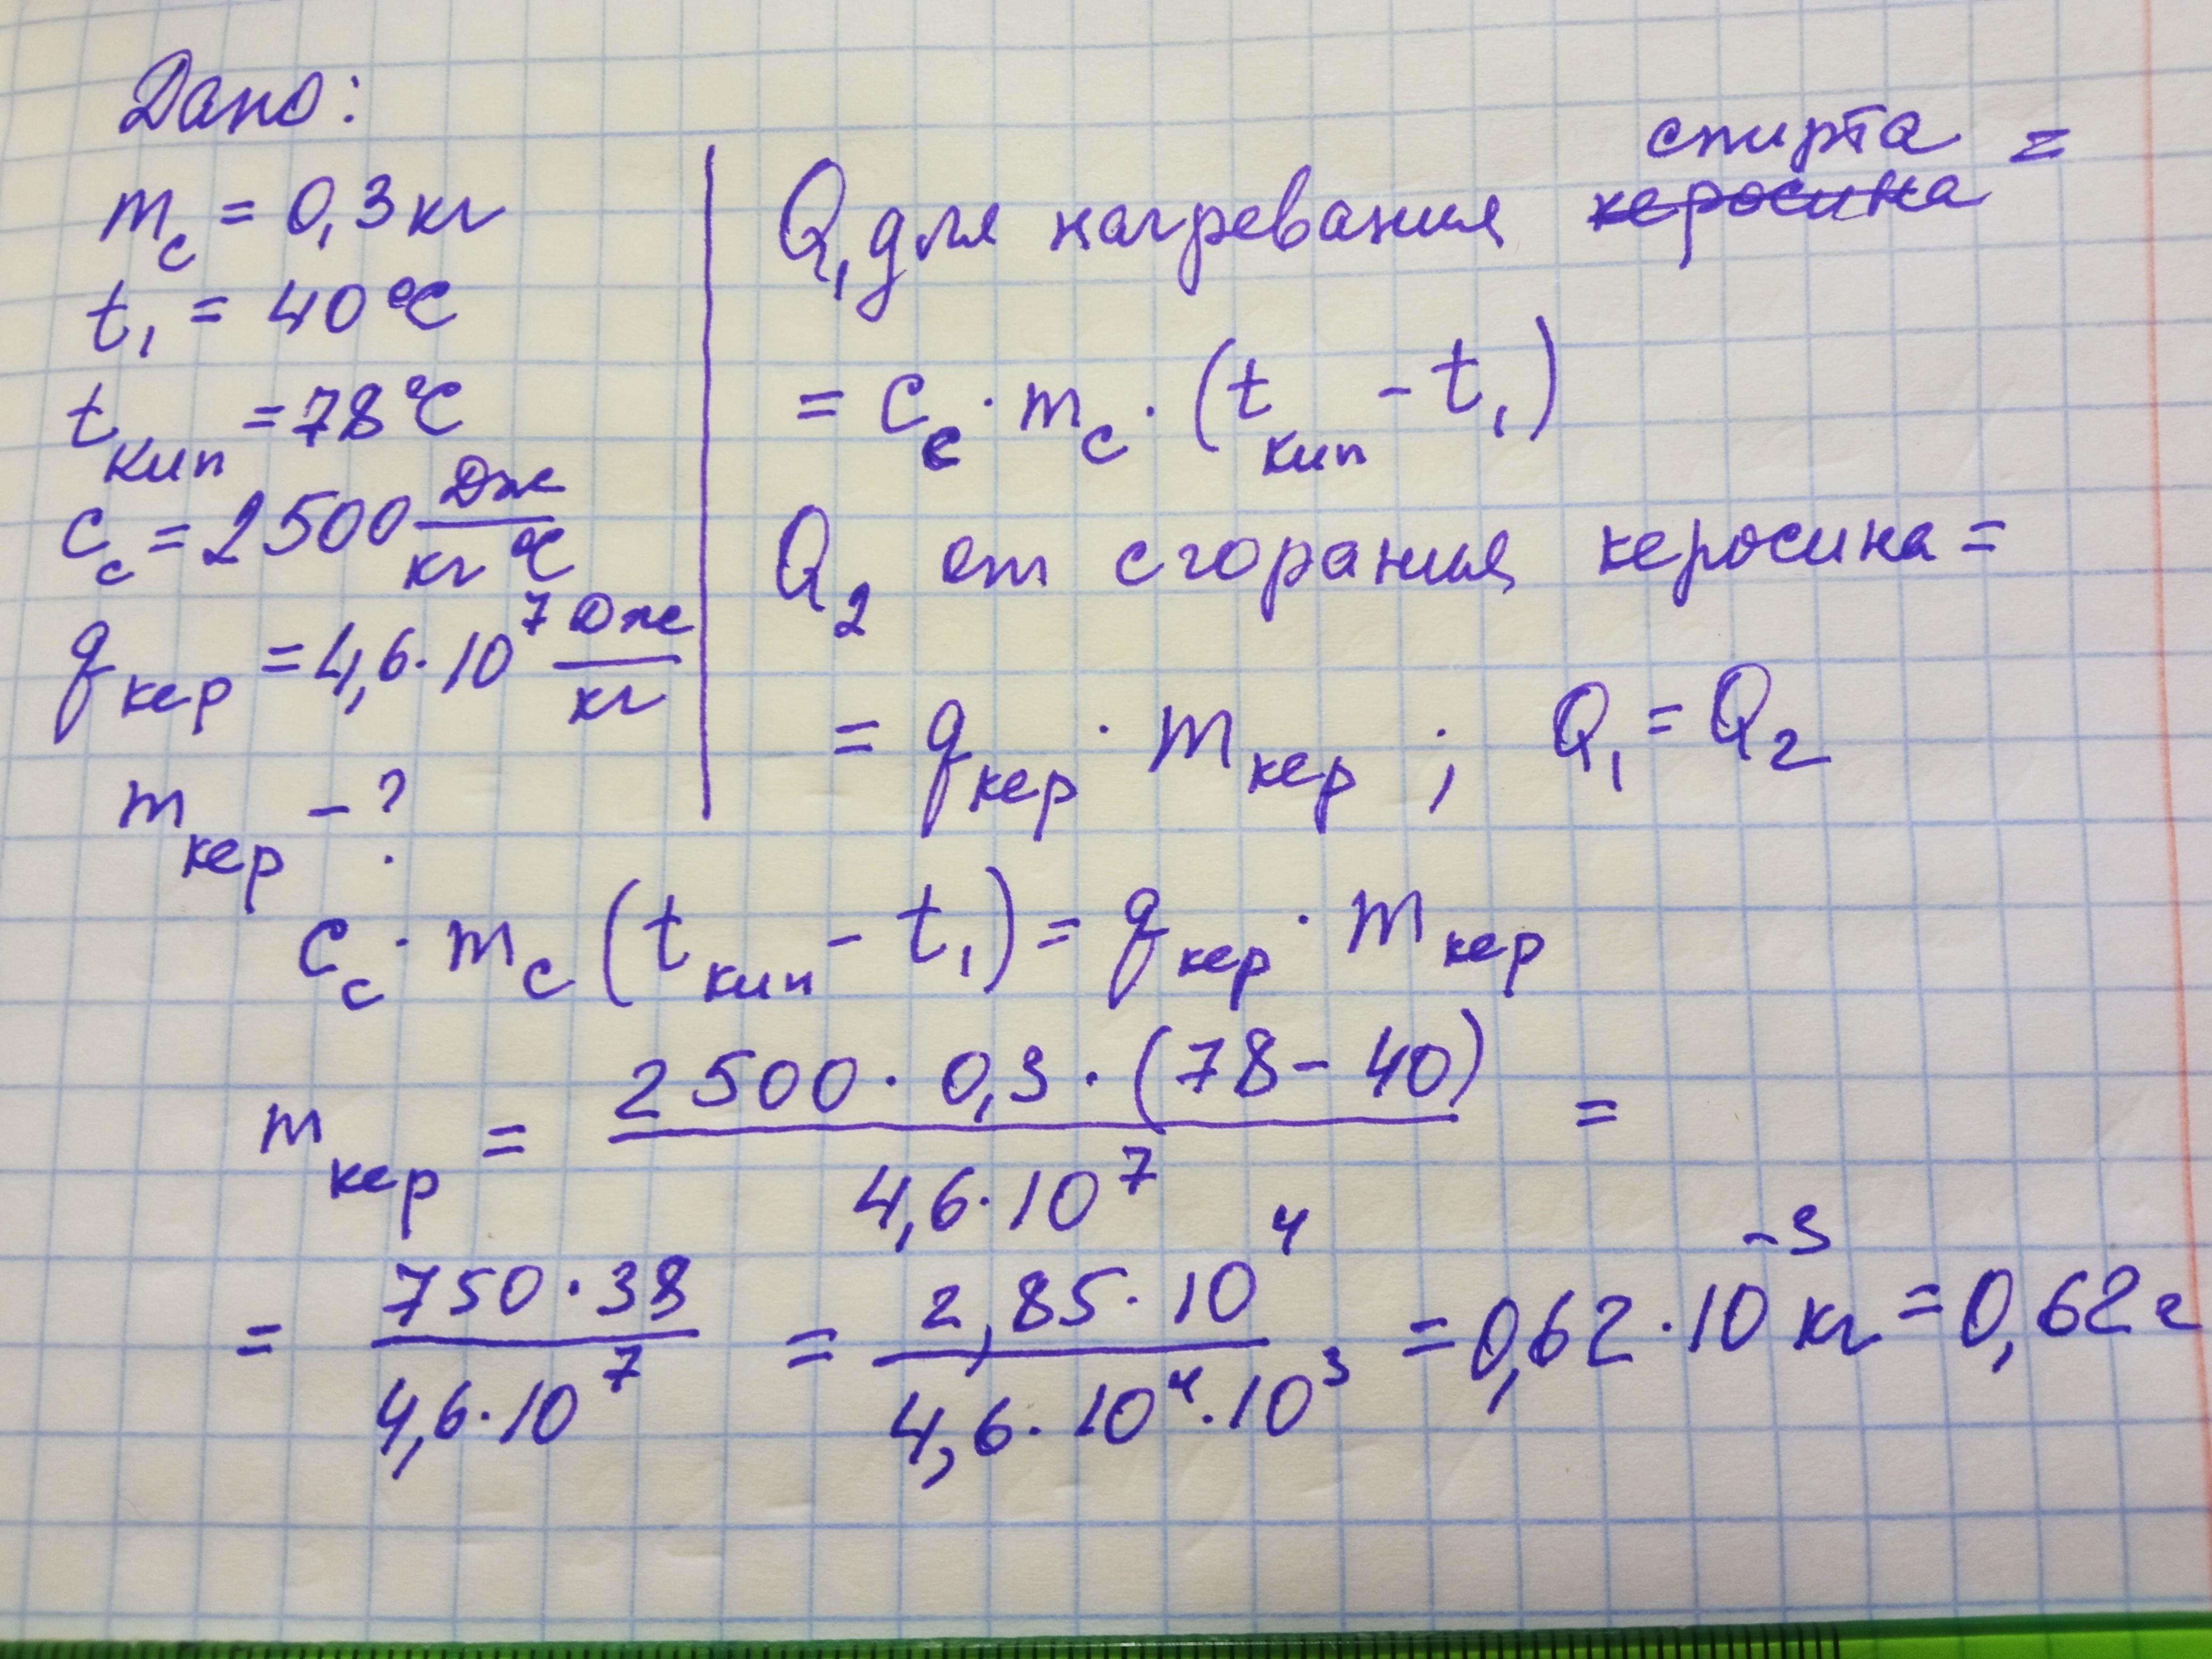 Дано:
m_c = 0,3 кг
t_1 = 40 °C
t_кип = 78 °C
c_c = 2500 Дж/(кг °C)
q_кер = 4,6 · 10^7 Дж/кг
m_кер – ?
Q_1 для нагревания ~~керосина~~ спирта =
= c_c · m_c · (t_кип – t_1)
Q_2 от сгорания керосина =
= q_кер · m_кер ; Q_1 = Q_2
c_c · m_c (t_кип – t_1) = q_кер · m_кер
m_кер = (2500 · 0,3 · (78 – 40))/(4,6 · 10^7) =
= (750 · 38)/(4,6 · 10^7) = (2,85 · 10^4)/(4,6 · 10^4 · 10^3) = 0,62 · 10^-3 кг = 0,62 г